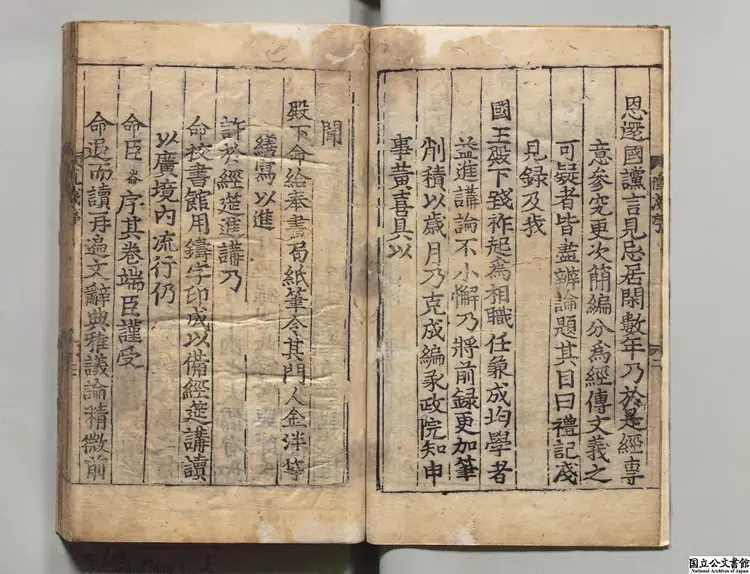 恩還國讜言見忌居閑數年乃於是經專
意參究更次簡編分爲經傳文義之
可疑者皆盡辨論題其目曰禮記淺
見録及我
國王殿下踐祚起爲相職任兼成均學者
益進講論不小懈乃將前録更加筆
削積以歲月乃克成編承政院知申
事黄喜具以
聞
殿下命給奉書局紙筆令其門人金泮等
繕寫以進
許於經筵進講乃
命校書館用鑄字印成以備經筵講讀
以廣境内流行仍
命臣崙序其卷端臣謹受
命退而讀再遍文辭典雅議論精微前
国立公文書館
National Archives of Japan